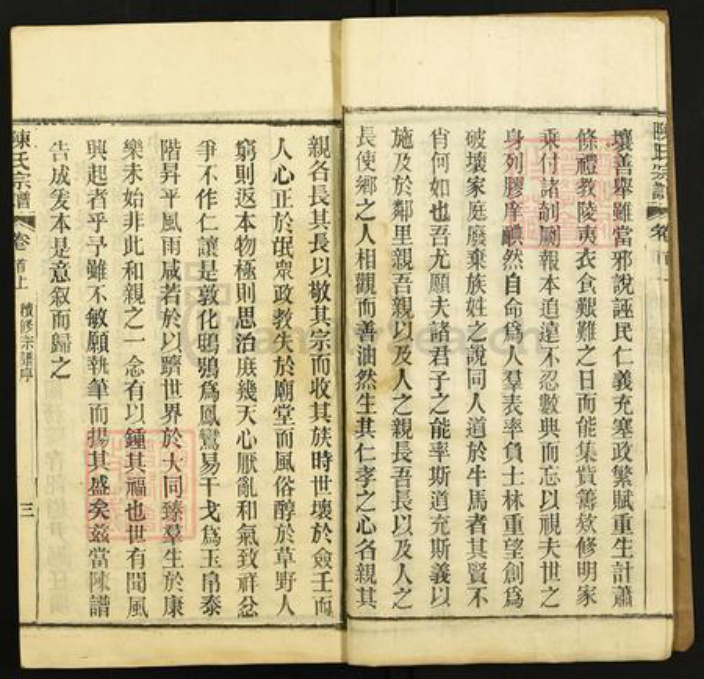 陳氏宗譜
卷首
壞善舉雖當邪說誣民仁義充塞政繁賦重生計蕭
條禮教陵夷衣食艱難之日而能集貲籌欵修明家
乘付諸剞劂報本追遠不忍數典而忘以視夫世之
身列膠庠靦然自命爲人羣表率負士林重望創爲
破壞家庭廢棄族姓之說同人道於牛馬者其賢不
肖何如也吾尤願夫諸君子之能率斯道充斯義以
施及於鄰里親吾親以及人之親長吾長以及人之
長使鄉之人相觀而善油然生其仁孝之心各親其
親各長其長以敬其宗而收其族時世壞於僉壬而
人心正於氓衆政教失於廟堂而風俗醇於草野人
窮則返本物極則思治庶幾天心厭亂和氣致祥忿
爭不作仁讓是敦化鴟鴞爲鳳鸞易干戈爲玉帛泰
階昇平風雨咸若於以躋世界於大同臻羣生於康
樂未始非此和親之一念有以鍾其福也世有聞風
興起者乎予雖不敏願執筆而揚其盛矣茲當陳譜
告成爰本是意叙而歸之
陳氏宗譜
卷首上
續修宗譜序
三